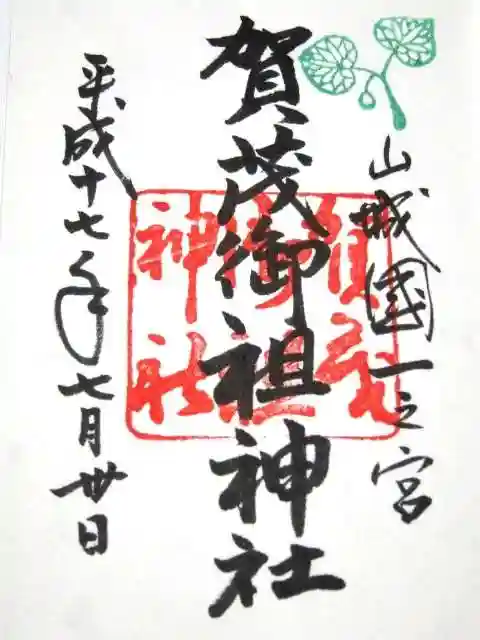 山城國一之宮
賀茂御祖神社
平成十七年七月卅日
賀茂
御祖
神社